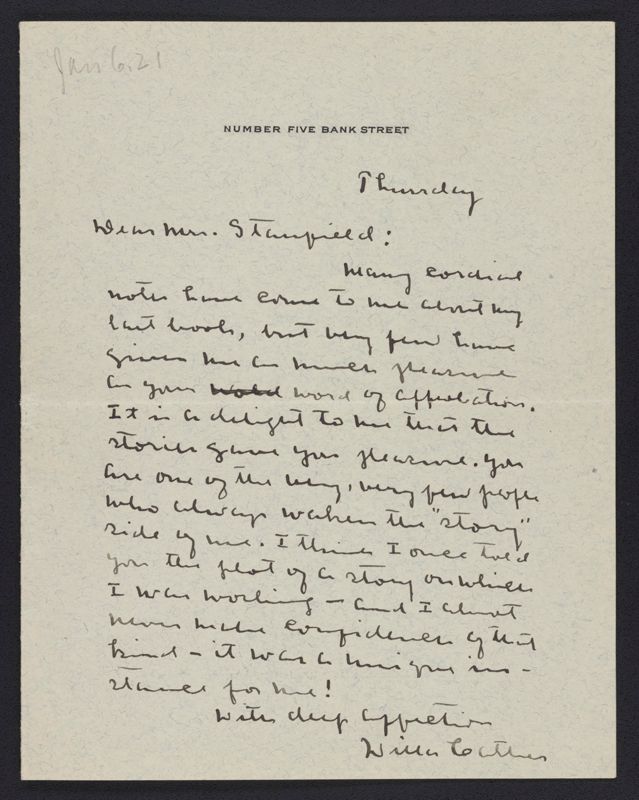 Jan 6. 21
NUMBER FIVE BANK STREET
Thursday
Dear Mrs. Stanfield:
Many cordial
notes have come to me about my
last book, but very few have
given me as much pleasure
as your word of approbation.
It is a delight to me that the
stories gave you pleasure. You
are one of the very, very few people
who always waken the "story"
side of me. I think I once told
you the plot of a story on which
I was working — and I almost
never make confidences of that
kind — it was a unique in-
stance for me!
With deep affection
Willa Cather